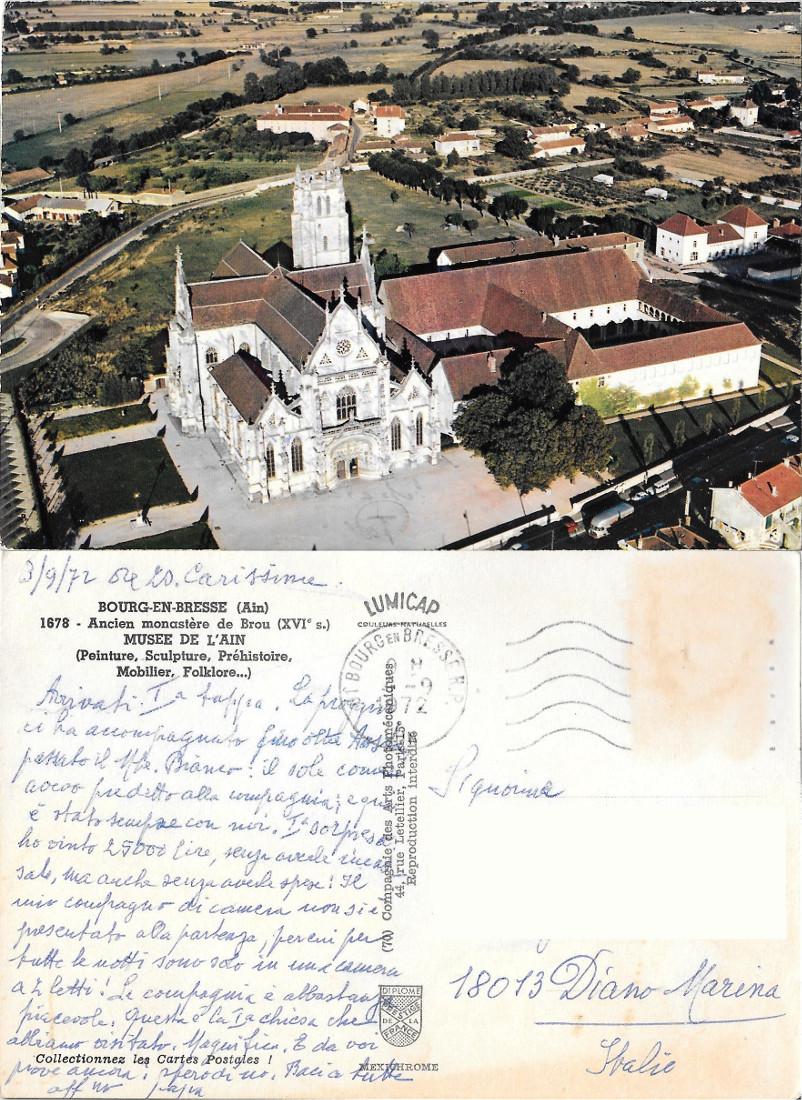 3/9/72 ore 20. Carissime.
BOURG-EN-BRESSE (Ain)
1678 - Ancien monastère de Brou (XVIe s.)
MUSEE DE L'AIN
(Peinture, Sculpture, Préhistoire,
Mobilier, Folklore...)
Arrivati. Ia tappa. La pioggia
ci ha accompagnato fino oltre Aosta
passato il M/te Bianco! il sole come
avevo predetto alla compagnia; e qui
è stato sempre con noi. Ia sorpresa
ho vinto 25000 lire, senza averle incas
sate, ma anche senza averle spese! Il
mio compagno di camera non si è
presentato alla partenza, per cui per
tutte le notti sono solo in una camera
a 2 letti! La compagnia è abbastanza
piacevole. Questa è la Ia chiesa che
abbiamo visitato. Magnifica. E da voi
piove ancora? spero di no. Baci a tutte
aff mo papà
Collectionnez les Cartes Postales !
LUMICAP
COULEURS NATURELLES
01 BOURG EN BRESSE R.P.
3 -9
1972
(70) Compagnie des Arts Photomécaniques
44, rue Letellier, Paris-15e
Reproduction interdite
DIPLOME
PRESTIGE
DE LA
FRANCE
MEXICHROME
Signorine
18013 Diano Marina
Italie